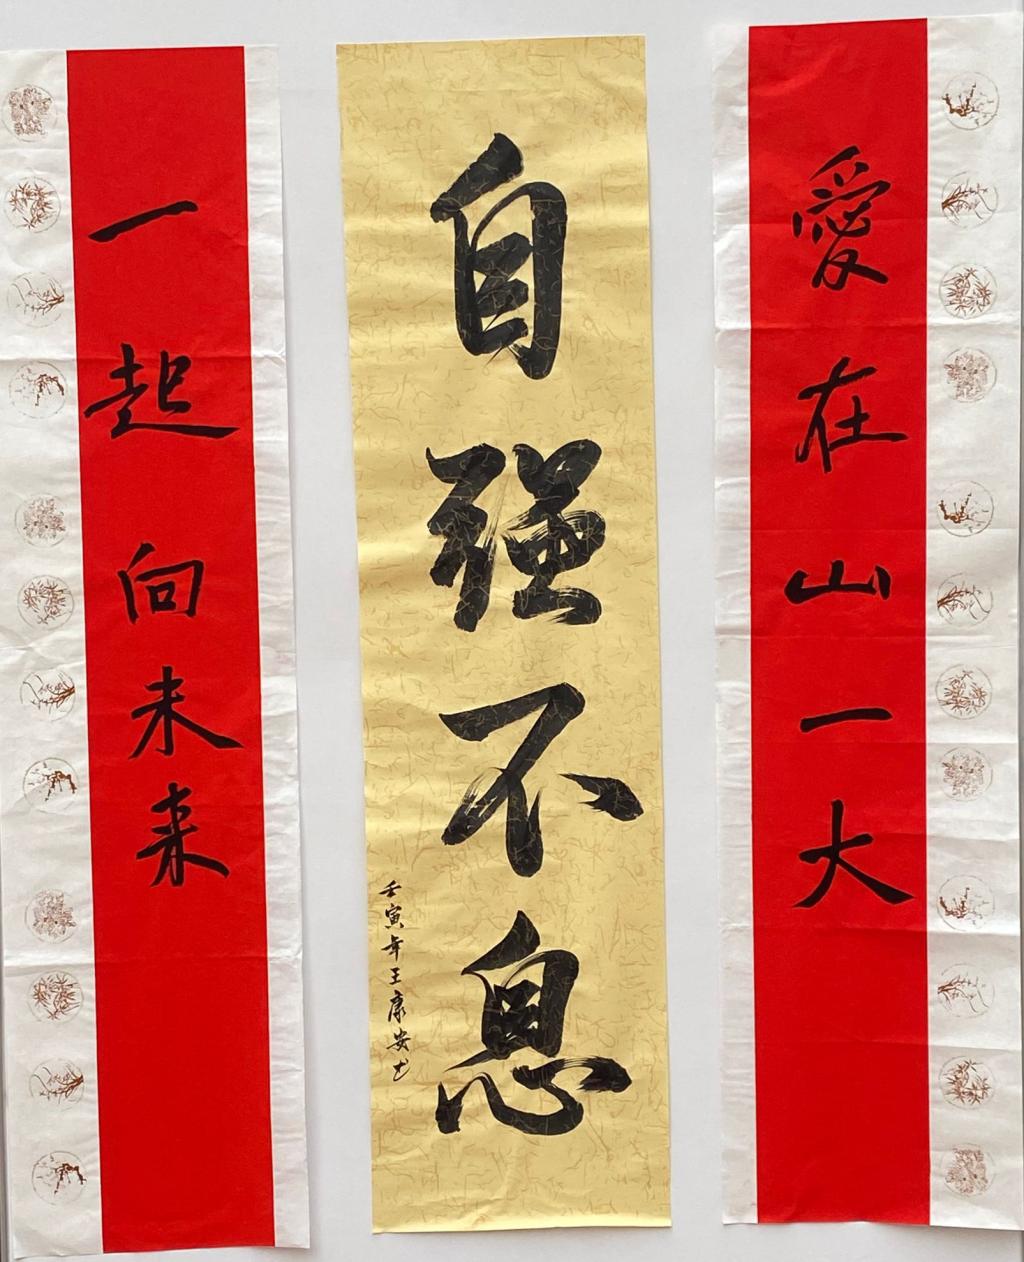 愛在山一大
自強不息
壬寅年王康安书
一起向未来